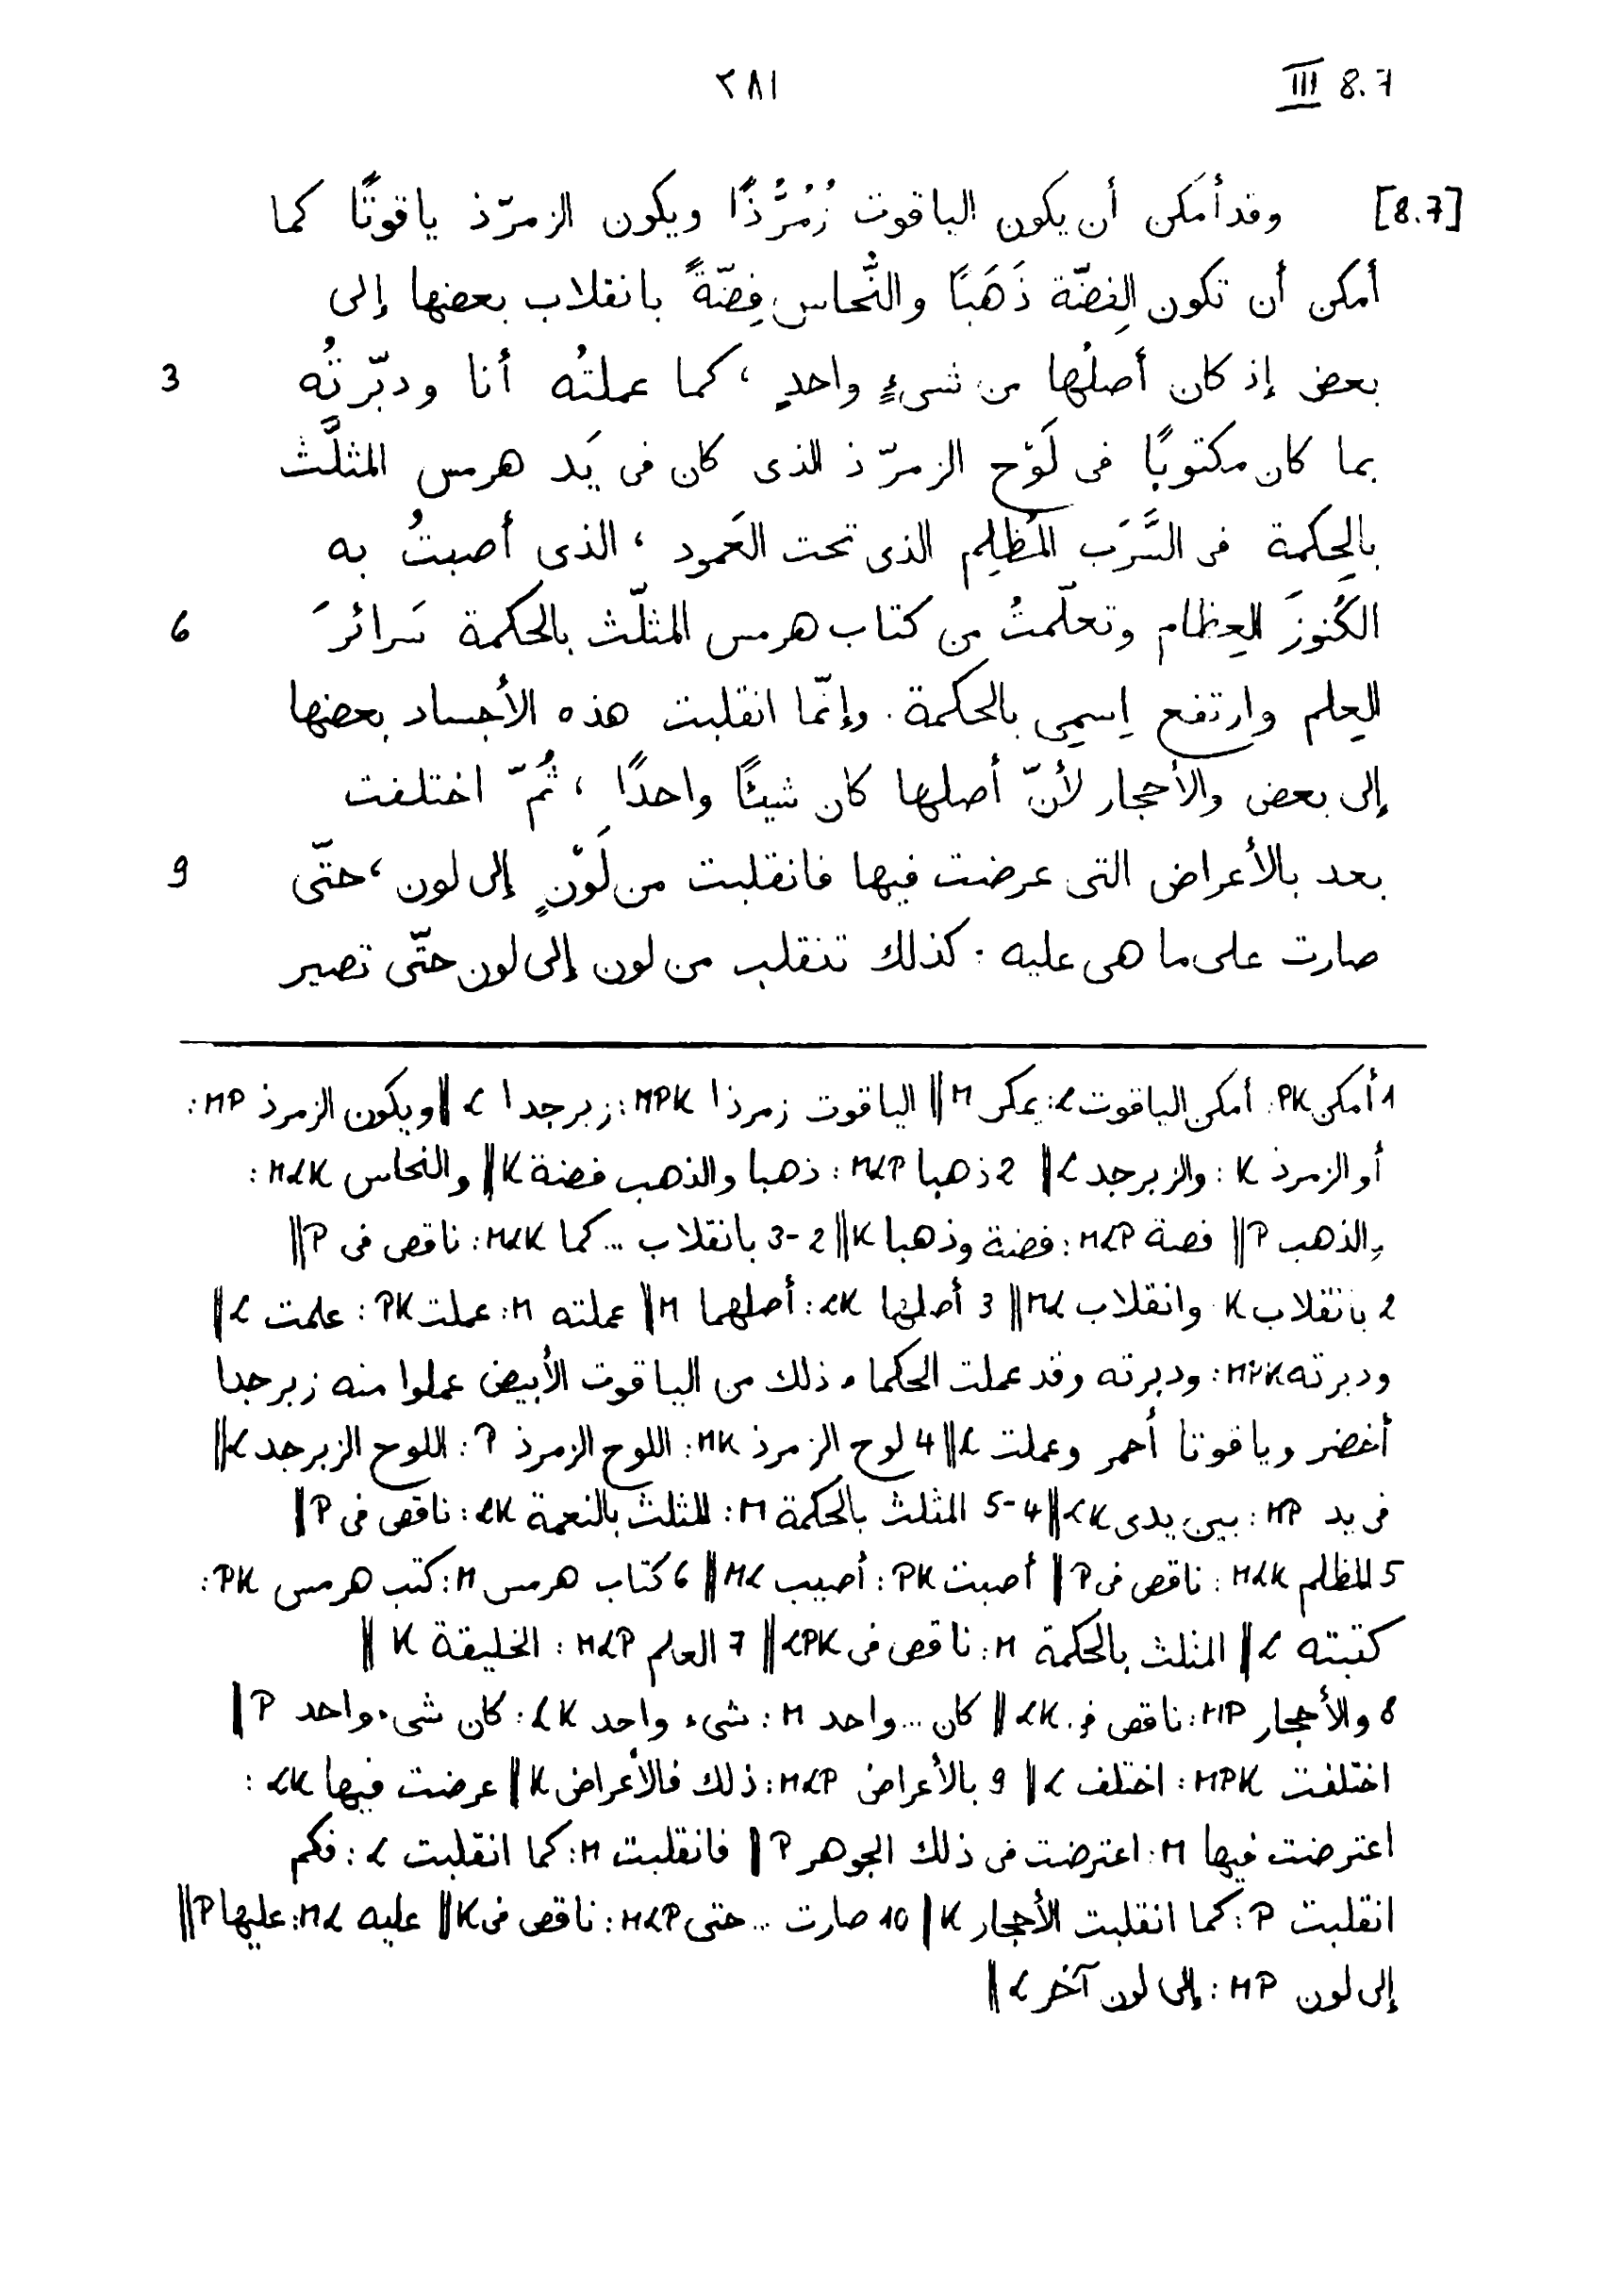 ٢٨١ III 8.7
[8.7] وقد أمكن أن يكون الياقوت زُمُرُّذًا ويكون الزمرّذ ياقوتًا كما
أمكن أن تكون الفِضّة ذَهَبًا والنُّحاس فِضّةً بانقلاب بعضها إلى
بعض إذ كان أصلُها من شيءٍ واحدٍ ، كما عملتُه أنا ودبّرتُه 3
بما كان مكتوبًا فى لَوْح الزمرّذ الذى كان فى يَد هرمس المثلَّث
بالحِكمة فى السَّرَب المُظلِم الذى تحت العَمود ، الذى أصبتُ به
الكُنوزَ العِظام وتعلّمتُ من كتاب هرمس المثلّث بالحكمة سَرائرَ 6
العِلم وارتفع اِسمِى بالحكمة . وإنّما انقلبت هذه الأجساد بعضها
إلى بعض والأحجار لأنّ أصلها كان شيئًا واحدًا ، ثُمّ اختلفت
بعد بالأعراض التى عرضت فيها فانقلبت من لَوْنٍ إلى لون ، حتّى 9
صارت على ما هى عليه . كذلك تنقلب من لون إلى لون حتّى تصير
1 أمكن PK: أمكن الياقوت L: يمكن M || الياقوت زمرذا MPK: زبرجدا L || ويكون الزمرذ MP:
أو الزمرذ K : والزبرجد L || 2 ذهبا MLP : ذهبا والذهب فضة K || والنحاس MLK :
والذهب P || فضة MLP : فضة وذهبا K || 2-3 بانقلاب ... كما MLK : ناقص فى P ||
2 بانقلاب K : وانقلاب ML || 3 أصلها LK : أصلهما M || عملته M : عملت PK : علمت L ||
ودبرته MPK : ودبرته وقد عملت الحكماء ذلك من الياقوت الأبيض عملوا منه زبرجدا
أخضر وياقوتا أحمر وعملت L || 4 لوح الزمرذ MK : اللوح الزمرذ P : اللوح الزبرجد L ||
فى يد MP : بين يدى LK || 4-5 المثلث بالحكمة M : المثلث بالنعمة LK : ناقص فى P ||
5 المظلم MLK : ناقص فى P || أصبت PK : أصيب ML || 6 كتاب هرمس M : كتب هرمس PK :
كتبته L || المثلث بالحكمة M : ناقص فى LPK || 7 العلم MLP : الخليقة K ||
8 والأحجار MP : ناقص فى LK || كان ... واحد M : شىء واحد LK : كان شىء واحد P ||
اختلفت MPK : اختلف L || 9 بالأعراض MLP : ذلك فالأعراض K || عرضت فيها LK :
اعترضت فيها M : اعترضت فى ذلك الجوهر P || فانقلبت M : كما انقلبت L : فكم
انقلبت P : كما انقلبت الأحجار K || 10 صارت ... حتى MLP : ناقص فى K || عليه ML : عليها P ||
إلى لون MP : إلى لون آخر L ||